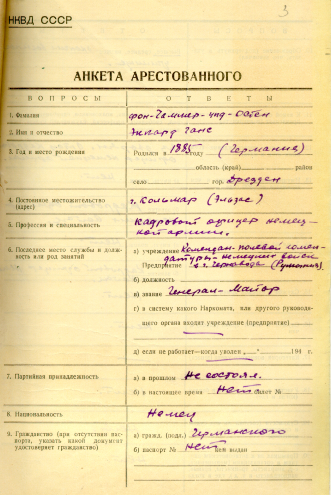 3
НКВД СССР
АНКЕТА АРЕСТОВАННОГО
ВОПРОСЫ ОТВЕТЫ
1. Фамилия фон-Чаммер-унд-Остен
2. Имя и отчество Экгард Ганс
3. Год и место рождения Родился в 1885 году (Германия)
область (край) район
село гор. Дрезден
4. Постоянное местожительство г. Кольмар (Эльзас)
(адрес)
5. Профессия и специальность Кадровый офицер немец-
кой армии.
6. Последнее место службы и долж- а) учреждение Комендант полевой комен-
ность или род занятий датуры немецких войск
Предприятие в г. Черновода (Румыния)
б) должность
в) звание Генерал-Майор
г) в систему какого Наркомата, или другого руководя-
щего органа входит учреждение (предприятие)
д) если не работает—когда уволен „ “ 194 г.
7. Партийная принадлежность а) в прошлом Не состоял.
б) в настоящее время Нет билет №
8. Национальность Немец
9. Гражданство (при отсутствии пас- а) гражд. (подд.) Германского
порта, указать какой документ
удостоверяет гражданство) б) паспорт № Нет кем выдан